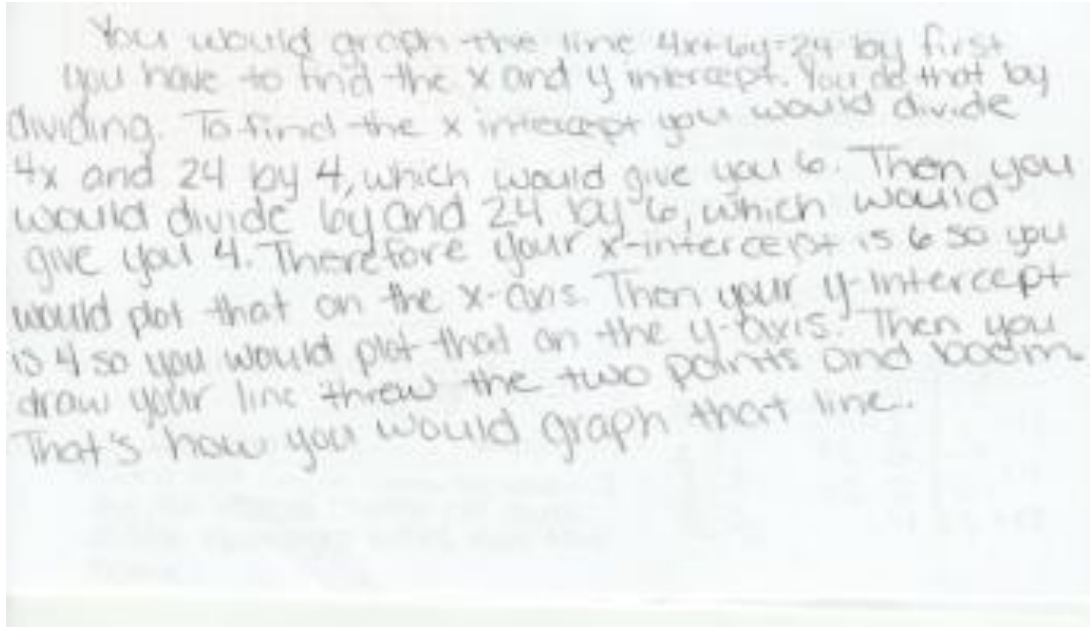 You would graph the line 4x+6y=24 by first
you have to find the x and y intercept. You do that by
dividing. To find the x intercept you would divide
4x and 24 by 4, which would give you 6. Then you
would divide 6y and 24 by 6, which would
give you 4. Therefore your x-intercept is 6 so you
would plot that on the x-axis. Then your y-intercept
is 4 so you would plot that on the y-axis. Then you
draw your line threw the two points and boom.
That's how you would graph that line.